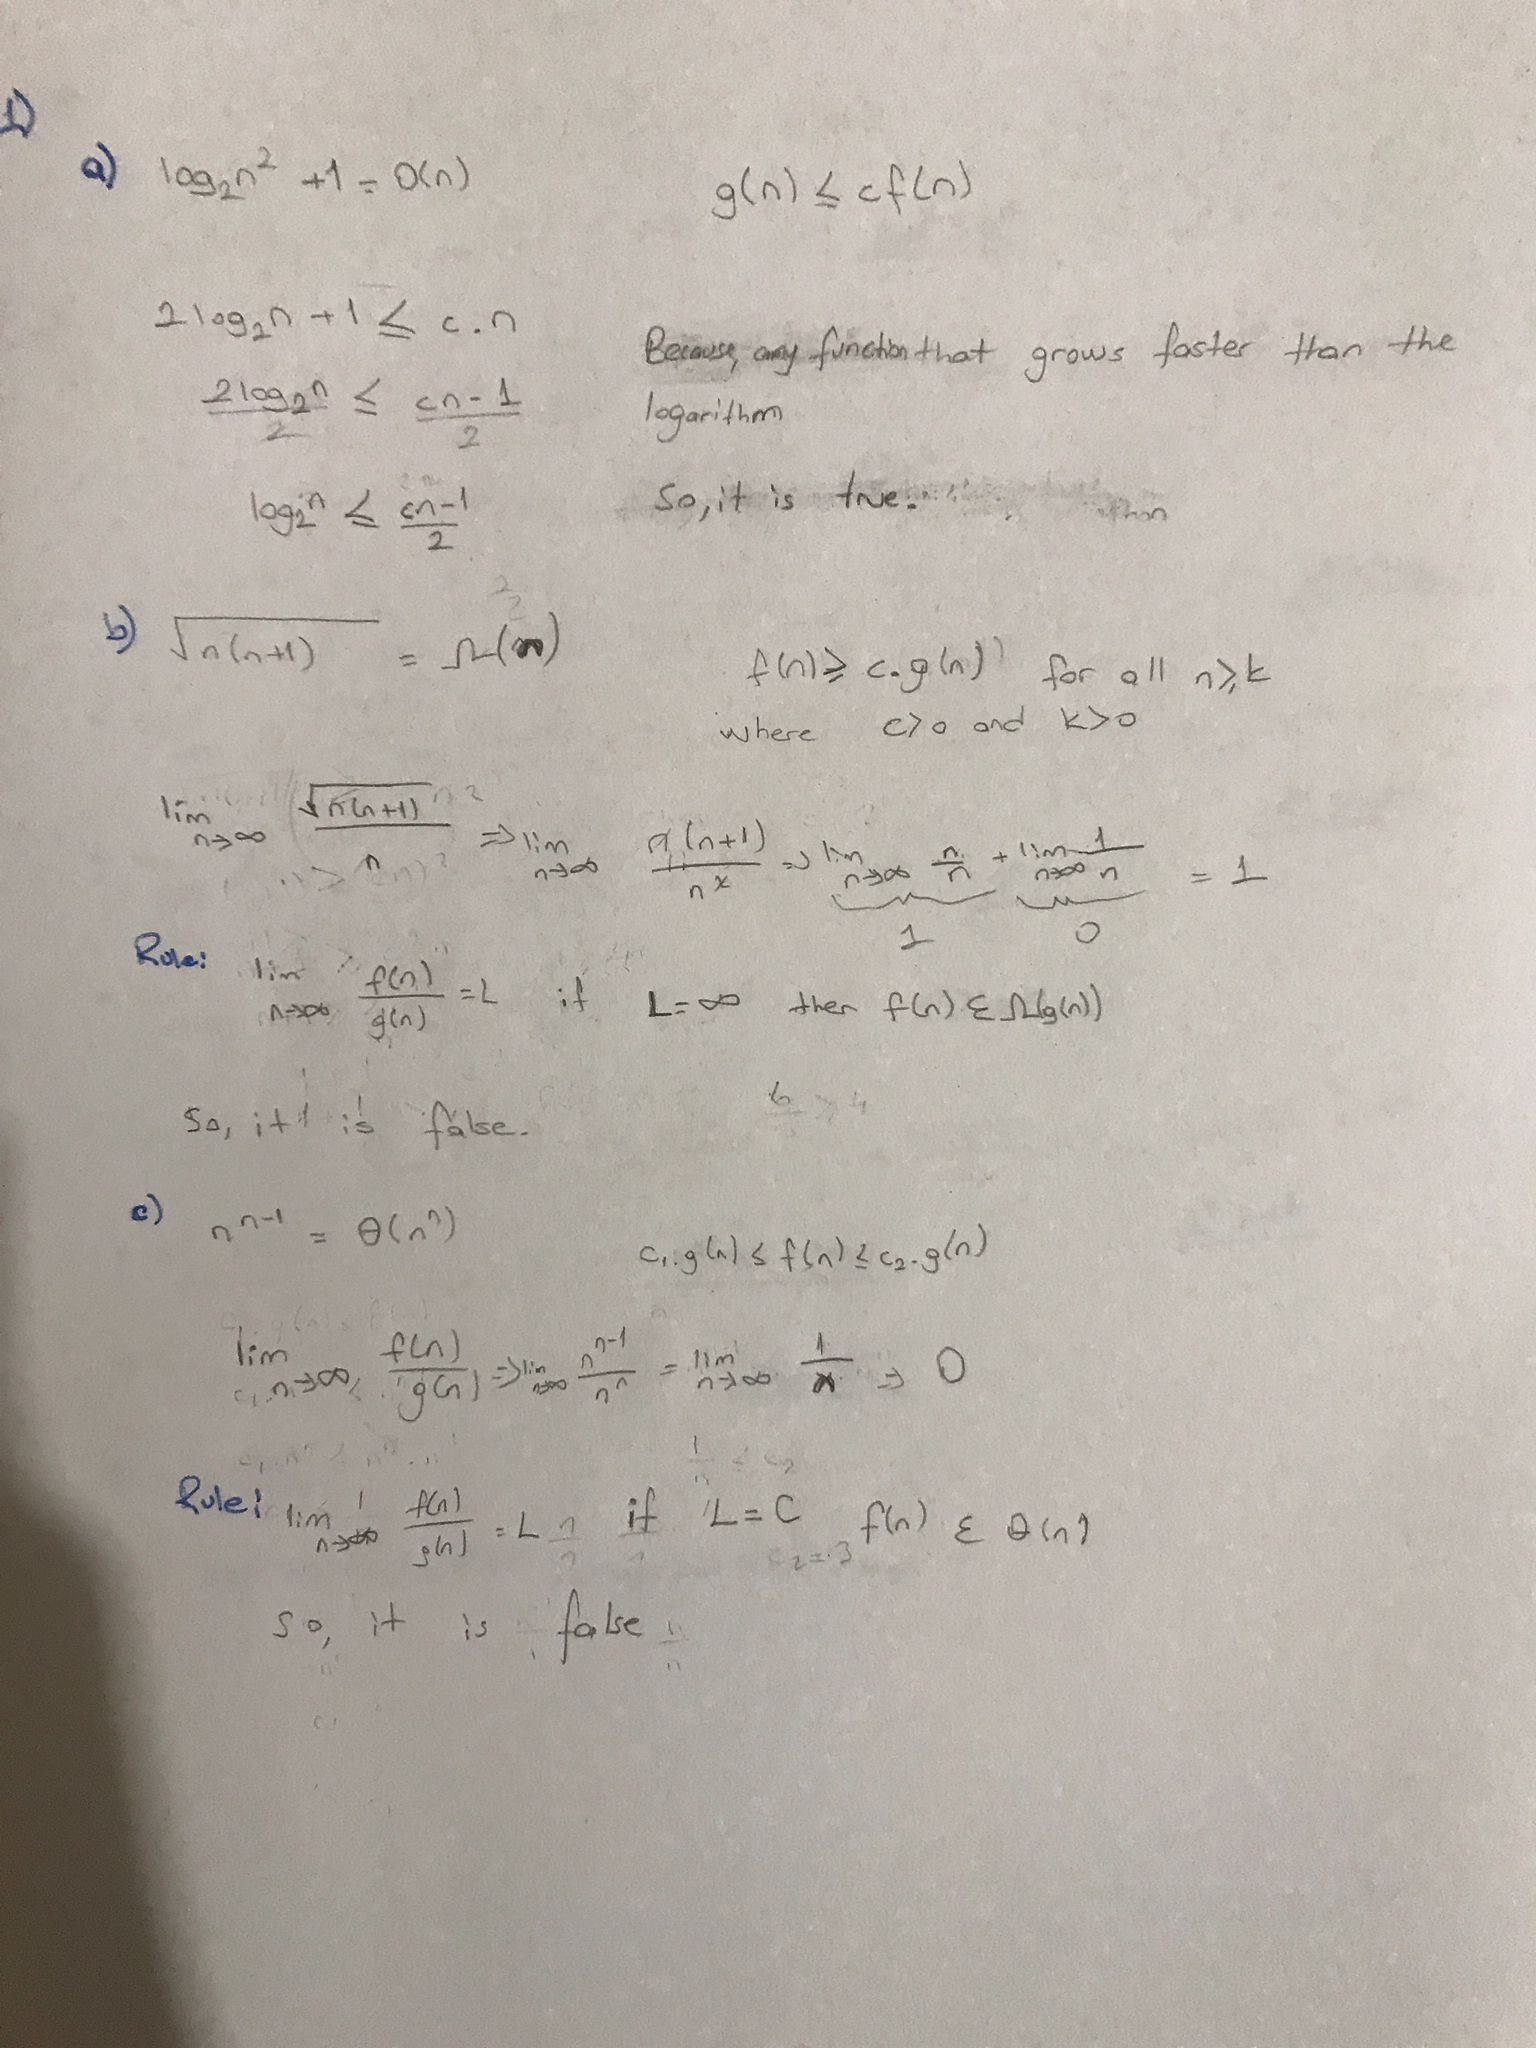 1)
a) log₂n² +1 = O(n) g(n) ≤ cf(n)
2log₂n +1 ≤ c.n
Because, any function that grows faster than the
2log₂n/2 ≤ cn-1/2
logarithm
log₂n ≤ cn-1/2
So, it is true.
b) √n(n+1) = Ω(n)
f(n) ≥ c.g(n) for all n≥k
where c>0 and k>0
lim n→∞ √n(n+1)/n ⇒ lim n→∞ n(n+1)/n² ⇒ lim n→∞ n/n + lim n→∞ 1/n = 1
1 0
Rule: lim n→∞ f(n)/g(n) = L if L=∞ then f(n) ε Ω(g(n))
So, it is false.
c) n^n-1 = θ(n^n)
c₁.g(n) ≤ f(n) ≤ c₂.g(n)
lim n→∞ f(n)/g(n) ⇒ lim n→∞ n^n-1/n^n = lim n→∞ 1/n ⇒ 0
Rule: lim n→∞ f(n)/g(n) = L if L=C f(n) ε θ(n)
so, it is false